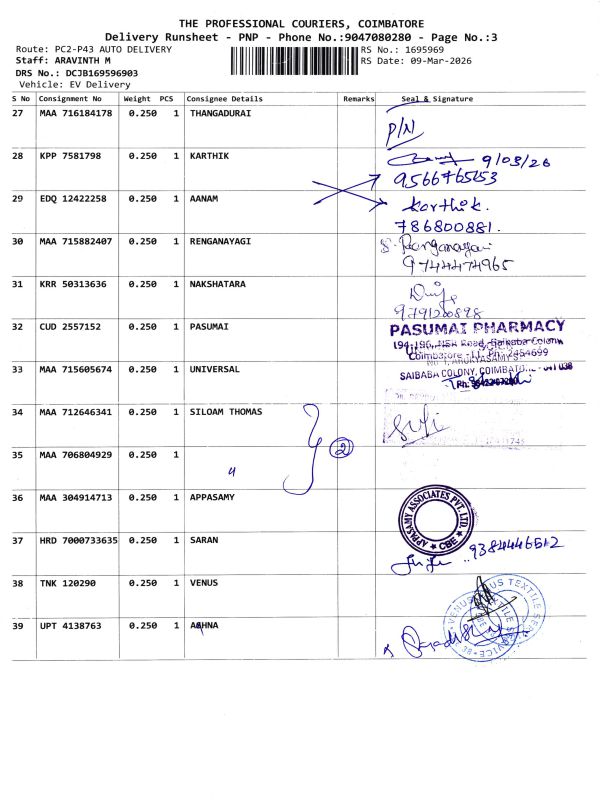 THE PROFESSIONAL COURIERS, COIMBATORE
Delivery Runsheet - PNP - Phone No.:9047080280 - Page No.:3
Route: PC2-P43 AUTO DELIVERY RS No.: 1695969
Staff: ARAVINTH M RS Date: 09-Mar-2026
DRS No.: DCJB169596903
Vehicle: EV Delivery
S No Consignment No Weight PCS Consignee Details Remarks Seal & Signature
27 MAA 716184178 0.250 1 THANGADURAI
P/N
28 KPP 7581798 0.250 1 KARTHIK 9/03/26
9566765153
29 EDQ 12422258 0.250 1 AANAM Karthik.
786800881.
30 MAA 715882407 0.250 1 RENGANAYAGI S. Ranganayagi
9744474965
31 KRR 50313636 0.250 1 NAKSHATARA
9791200898
32 CUD 2557152 0.250 1 PASUMAI PASUMAI PHARMACY
194-196, NSR Road, Saibaba Colony
Coimbatore - 11. Ph: 2454699
33 MAA 715605674 0.250 1 UNIVERSAL SAIBABA COLONY, COIMBATORE - 641 038
34 MAA 712646341 0.250 1 SILOAM THOMAS
35 MAA 706804929 0.250 1 2
36 MAA 304914713 0.250 1 APPASAMY APPASAMY ASSOCIATES PVT. LTD. CBE
37 HRD 7000733635 0.250 1 SARAN 9384446512
38 TNK 120290 0.250 1 VENUS VENUS TEXTILE SERVICE
39 UPT 4138763 0.250 1 AGHNA